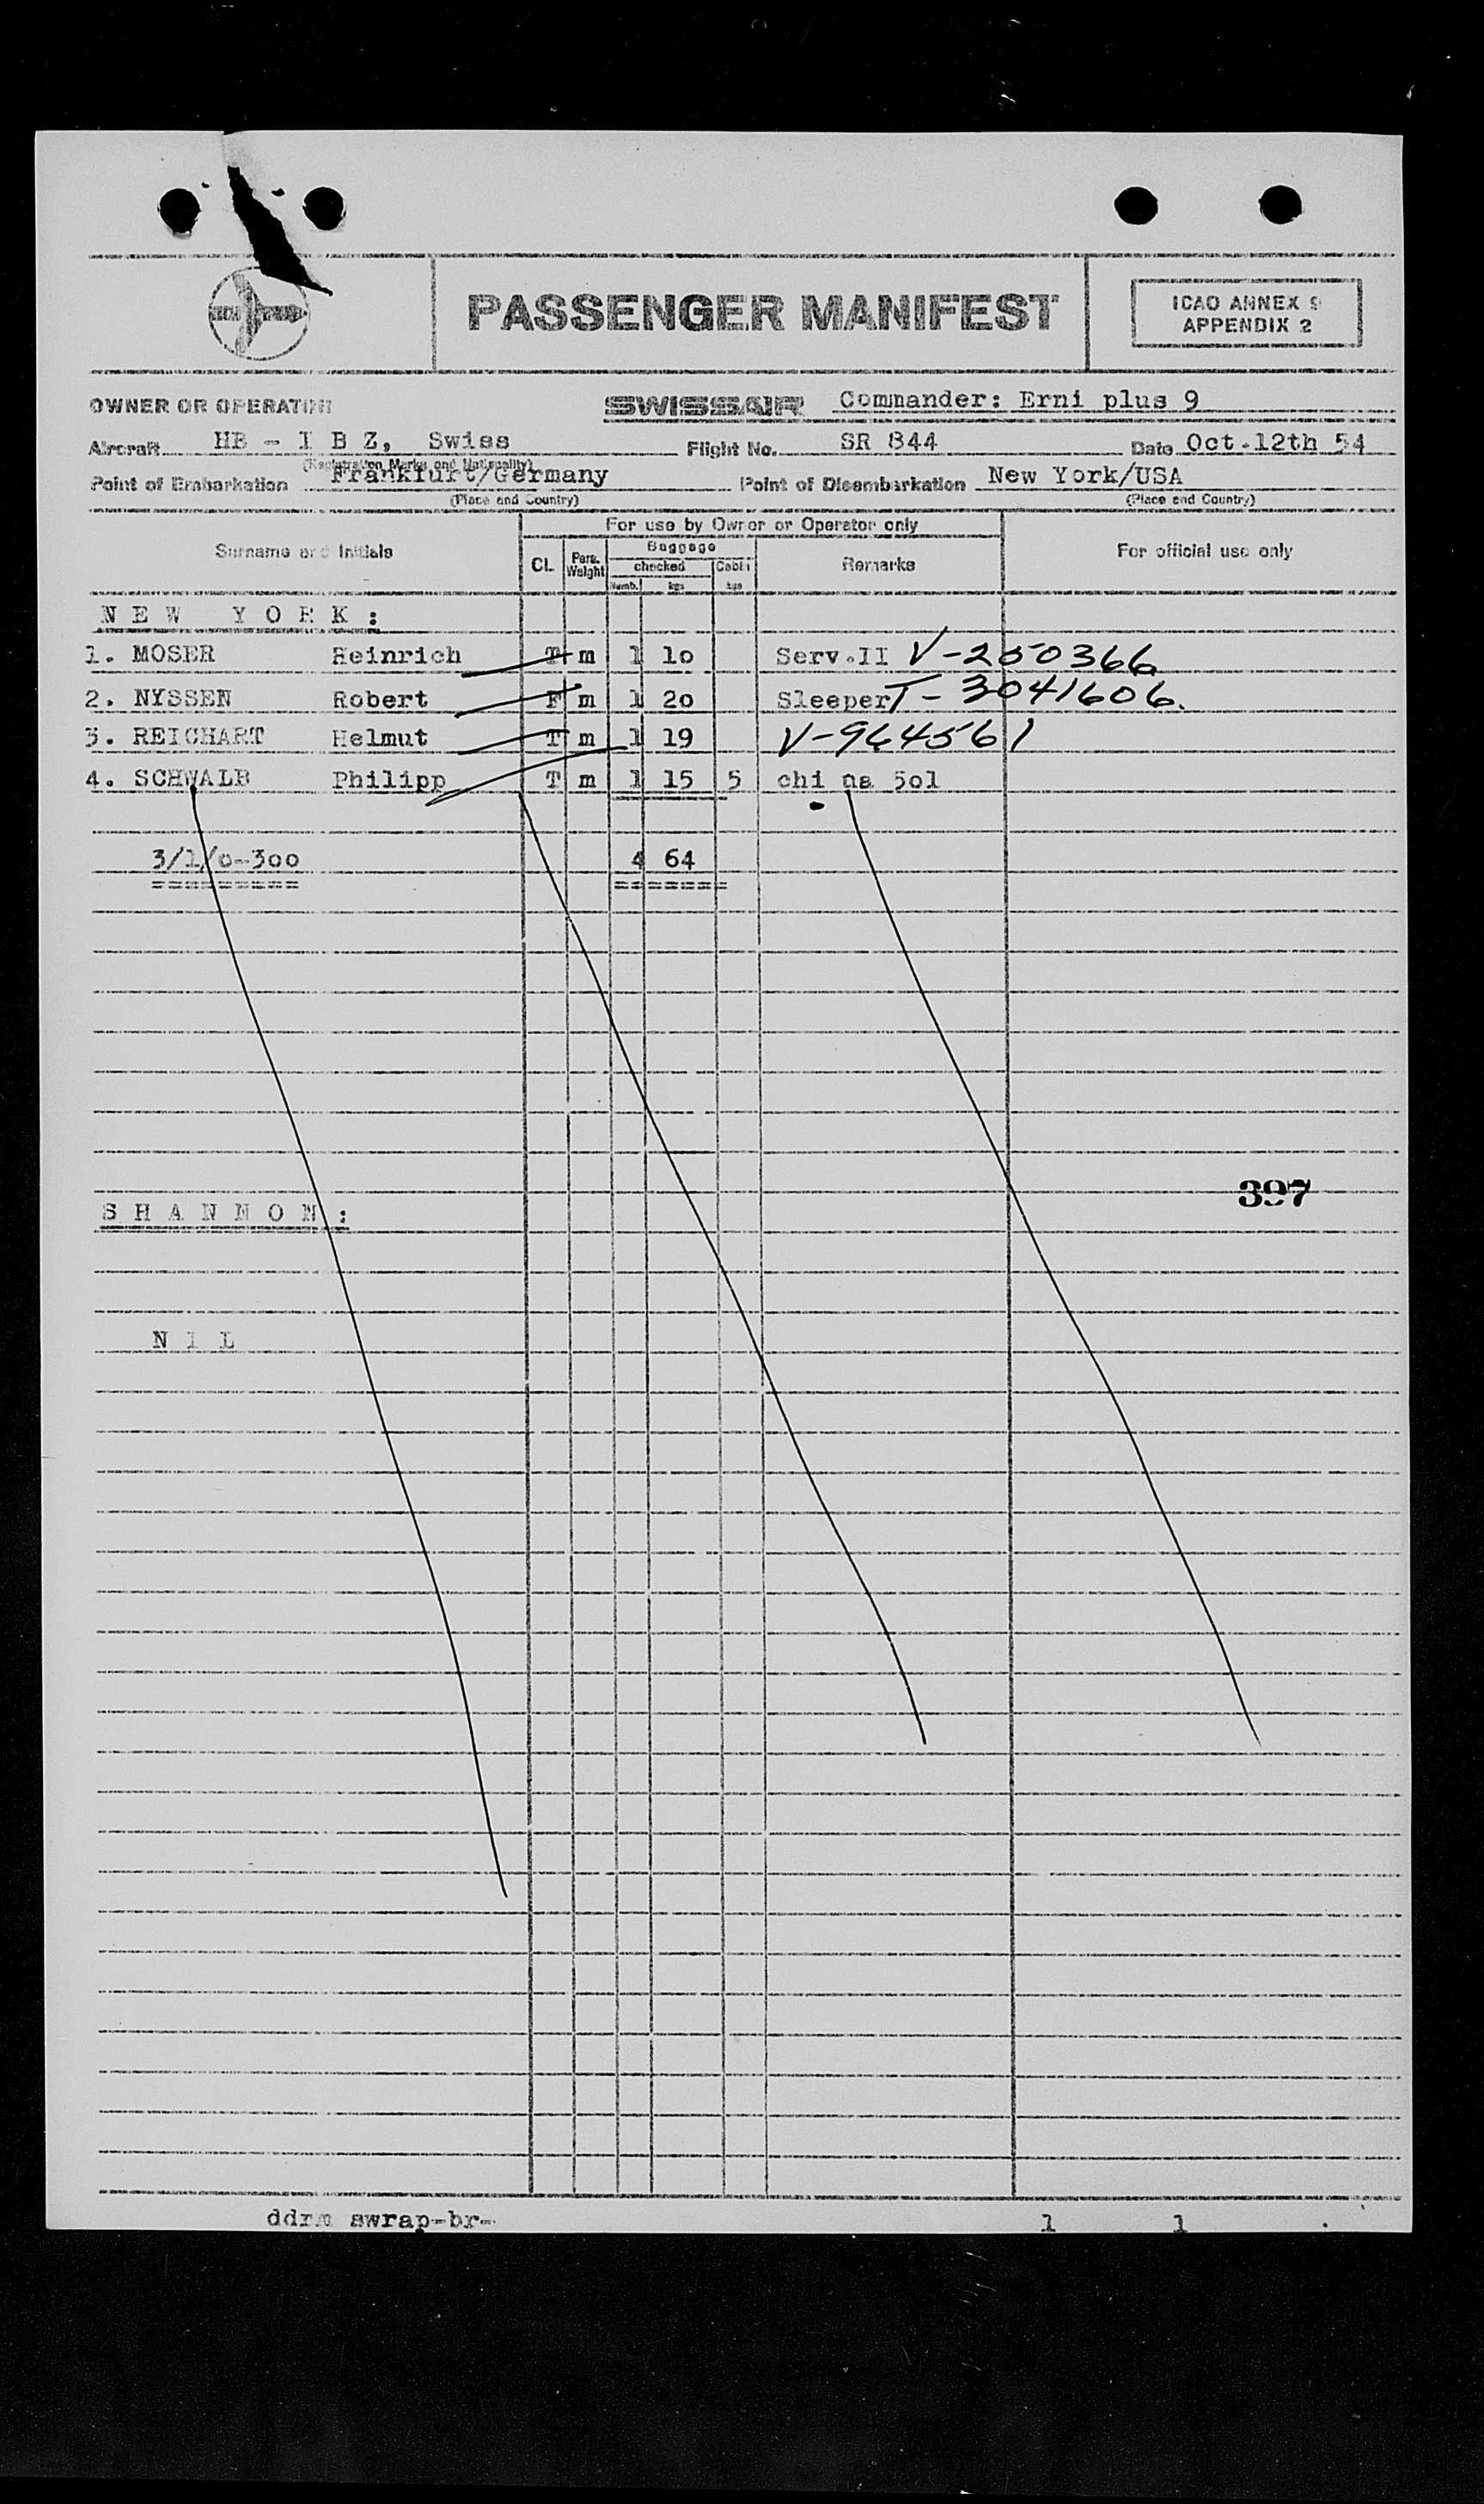 PASSENGER MANIFEST
ICAO ANNEX 9
APPENDIX 2
OWNER OR OPERATOR SWISSAIR Commander: Erni plus 9
Aircraft HB - I B Z, Swiss Flight No. SR 844 Date Oct.12th 54
(Registration Marks and Nationality)
Point of Embarkation Frankfurt/Germany Point of Disembarkation New York/USA
(Place and Country) (Place and Country)
For use by Owner or Operator only
Surname and Initials Cl. Pers. Weight Baggage Remarks For official use only
checked Cabin
Numb. kgs kgs
N E W Y O R K :
1. MOSER Heinrich T m 1 1o Serv.II V-250366
2. NYSSEN Robert F m 1 2o Sleeper T-3041606.
3. REICHART Helmut T m 1 19 V-964561
4. SCHWALB Philipp T m 1 15 5 chi na 5o1
3/1/o-3oo 4 64
========= =======
397
S H A N N O N :
N I L
ddrm swrap-br- 1 1